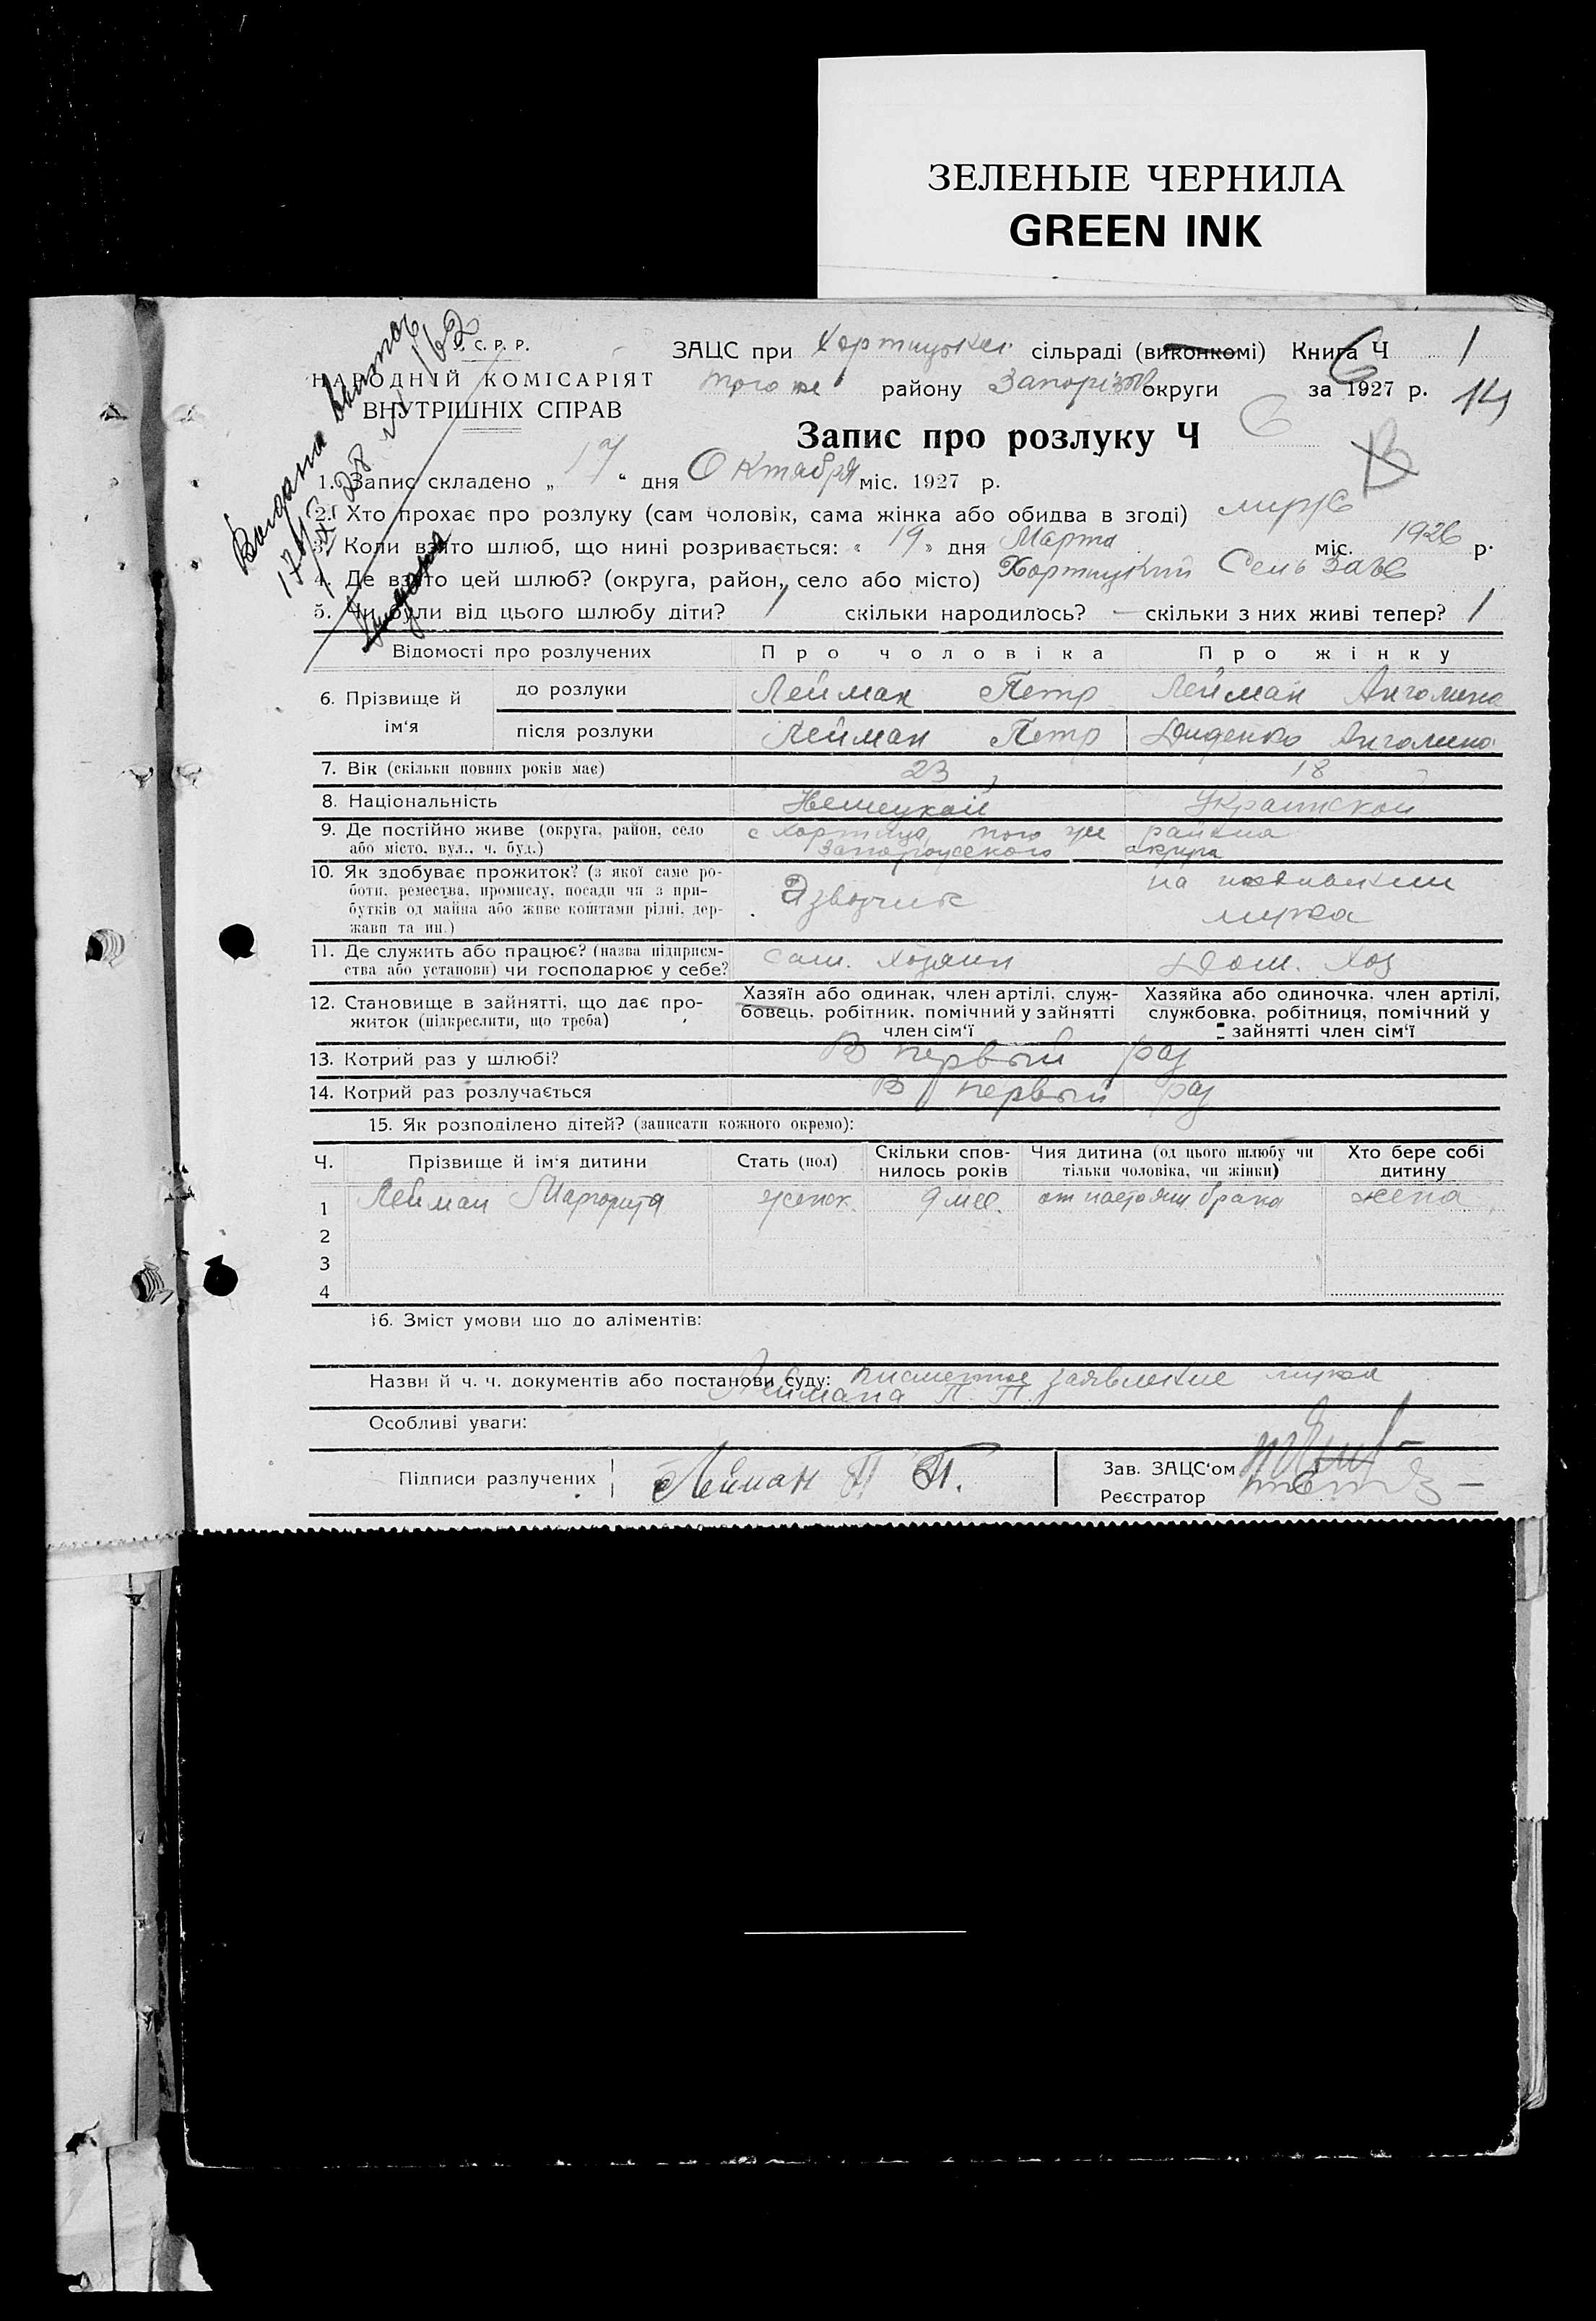 ЗЕЛЕНЫЕ ЧЕРНИЛА
GREEN INK
С. Р. Р.
НАРОДНІЙ КОМІСАРІЯТ
ВНУТРІШНІХ СПРАВ
ЗАЦС при Хортицькій сільраді (виконкомі) Книга Ч 1
того же району Запорізьк округи за 1927 р. 14
Запис про розлуку Ч 6
1. Запис складено „ 17 “ дня Октября міс. 1927 р.
2. Хто прохає про розлуку (сам чоловік, сама жінка або обидва в згоді) муж
3. Коли взято шлюб, що нині розривається: « 19 » дня Марта міс. 1926 р.
4. Де взято цей шлюб? (округа, район, село або місто) Хортицкий Сель Загс
5. Чи були від цього шлюбу діти? 1 скільки народилось? — скільки з них живі тепер? 1
Відомості про розлучених Про чоловіка Про жінку
6. Прізвище й ім‘я до розлуки Лейман Петр Лейман Анголина
після розлуки Лейман Петр Диденко Анголина
7. Вік (скільки повних років має) 23 18
8. Національність Немецкой Украинской
9. Де постійно живе (округа, район, село с Хортица, того же района
або місто, вул., ч. буд.) Запорожского округа
10. Як здобуває прожиток? (з якої саме ро-
боти, ремества, промислу, посади чи з при-
бутків од майна або живе коштами рідні, дер-
жави та ин.) Извозчик на иждивении мужа
11. Де служить або працює? (назва підприєм-
ства або установи) чи господарює у себе? Сам. Хозяин Дом. Хоз
12. Становище в зайнятті, що дає про-
житок (підкреслити, що треба)
Хазяїн або одинак, член артілі, служ-
бовець, робітник, помічний у зайнятті
член сім‘ї
Хазяйка або одиночка, член артілі,
службовка, робітниця, помічний у
зайнятті член сім‘ї
13. Котрий раз у шлюбі? В первый раз
14. Котрий раз розлучається В первый раз
15. Як розподілено дітей? (записати кожного окремо):
Ч. Прізвище й ім‘я дитини Стать (пол) Скільки спов-
нилось років Чия дитина (од цього шлюбу чи
тільки чоловіка, чи жінки) Хто бере собі
дитину
1 Лейман Маргорита женск. 9 мес. от настоящ брака жена
2
3
4
16. Зміст умови що до аліментів:
Назви й ч. ч. документів або постанови суду: письменное заявление мужа
Леймана П. П.
Особливі уваги:
Підписи разлучених Лейман П П.
Зав. ЗАЦС‘ом
Реєстратор